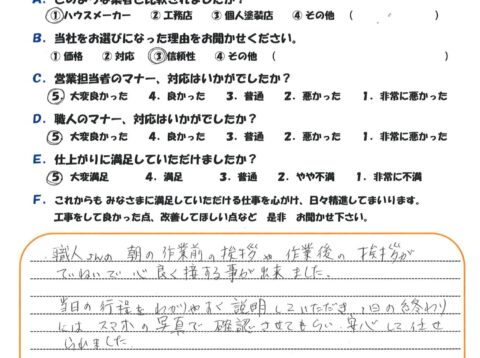 A. どのような業者と比較されましたか？
①ハウスメーカー ② 工務店 ③ 個人塗装店 ④ その他 （ ）
B. 当社をお選びになった理由をお聞かせください。
① 価格 ② 対応 ③信頼性 ④ その他 （ ）
C. 営業担当者のマナー、対応はいかがでしたか？
5. 大変良かった 4. 良かった 3. 普通 2. 悪かった 1. 非常に悪かった
D. 職人のマナー、対応はいかがでしたか？
5. 大変良かった 4. 良かった 3. 普通 2. 悪かった 1. 非常に悪かった
E. 仕上がりに満足していただけましたか？
5. 大変満足 4. 満足 3. 普通 2. やや不満 1. 非常に不満
F. これからも みなさまに満足していただける仕事を心がけ、日々精進してまいります。
工事をして良かった点、改善してほしい点など 是非 お聞かせ下さい。
職人さんの 朝の作業前の挨拶や作業後の 挨拶が
ていねいで 心良く接する事が出来ました。
当日の行程をわかりやすく説明していただき、1日の終わり
には スマホの写真で確認させてもらい 安心して任せ
られました